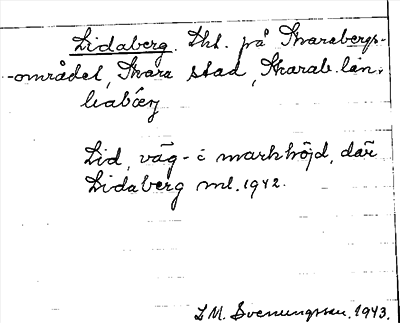 Lidaberg. Tkt. på Skarabergs-
-området, Skara stad, Skarab. län.
liabärj
Lid, väg- i markhöjd, där
Lidaberg ml. 1942.
L M. Svenungsson. 1943.